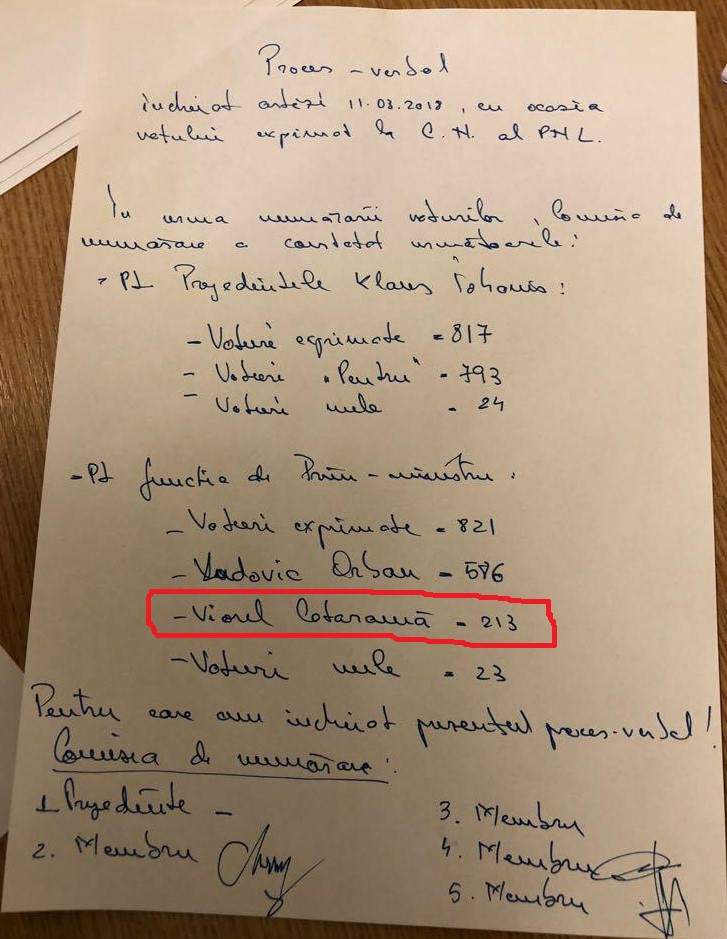 Proces-verbal
încheiat astăzi 11.03.2018, cu ocazia
votului exprimat la C.N. al PNL.
În urma numărării voturilor, Comisia de
numărare a constatat următoarele:
- Pt Președintele Klaus Iohannis:
- Voturi exprimate = 817
- Voturi „Pentru" - 793
- Voturi nule - 24
- Pt funcția de Prim-ministru:
- Voturi exprimate = 821
- Ludovic Orban = 586
- Viorel Cataramă = 213
- Voturi nule = 23
Pentru care am încheiat prezentul proces-verbal!
Comisia de numărare:
1 Președinte -
2. Membru
3. Membru
4. Membru
5. Membru